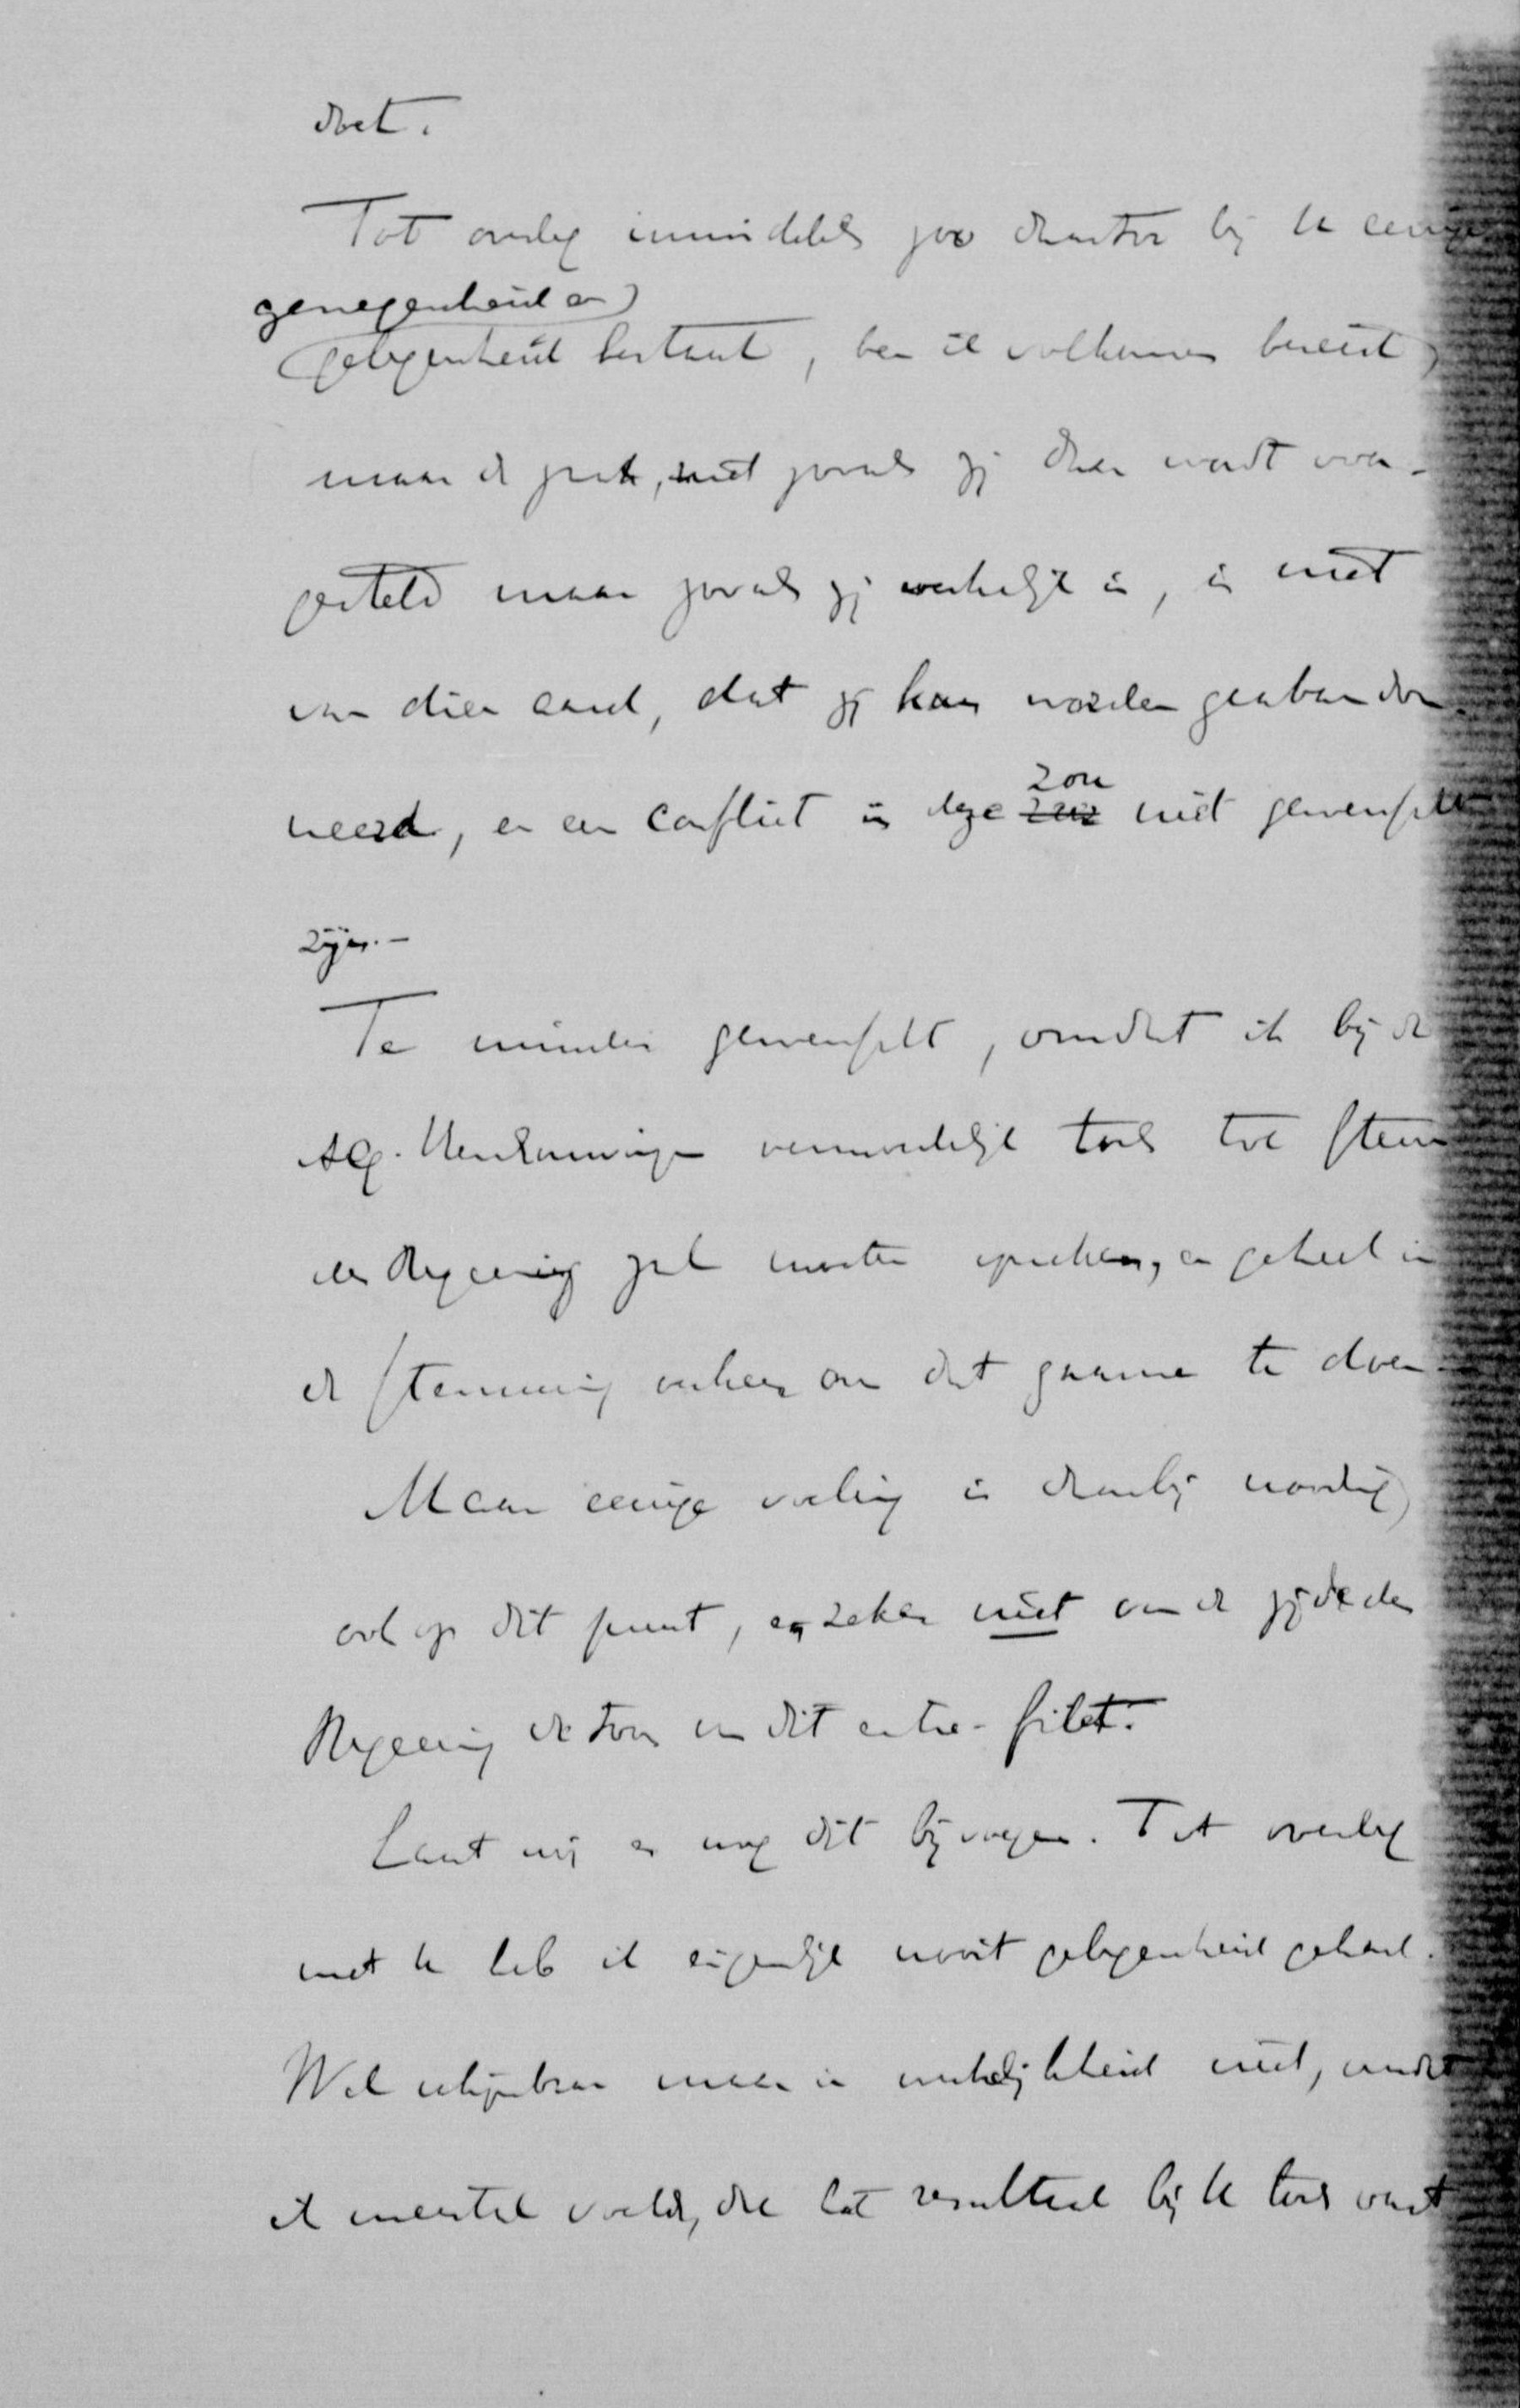 doet.
Tot overleg inmiddels zoo daartoe bij U eenige
genegenheid en
gelegenheid bestaat, ben ik volkomen bereid,
maar de zaak, niet zooals zij daar wordt voor-
gesteld maar zooals zij werkelijk is, is niet
van dien aard, dat zij kan worden geabandon-
neerd, en een conflict in deze zou niet gewenscht
zijn. -
Te minder gewenscht, omdat ik bij de
Alg. Verkiezingen vermoedelijk toch tot steun
der Regeering zal moeten spreken, en geheel in
de stemming verkeer om dat gaarne te doen.
Maar eenige voeling is daarbij noodig,
ook op dit punt, en zeker niet van de zijde der
Regeering de toon van dit entre-filet.
Laat mij er nog dit bijvoegen. Tot overleg
met U heb ik eigenlijk nooit gelegenheid gehad.
Wel schijnbaar maar in werkelijkheid niet, omdat
ik meestal voelde, dat het resultaat bij U toch vast